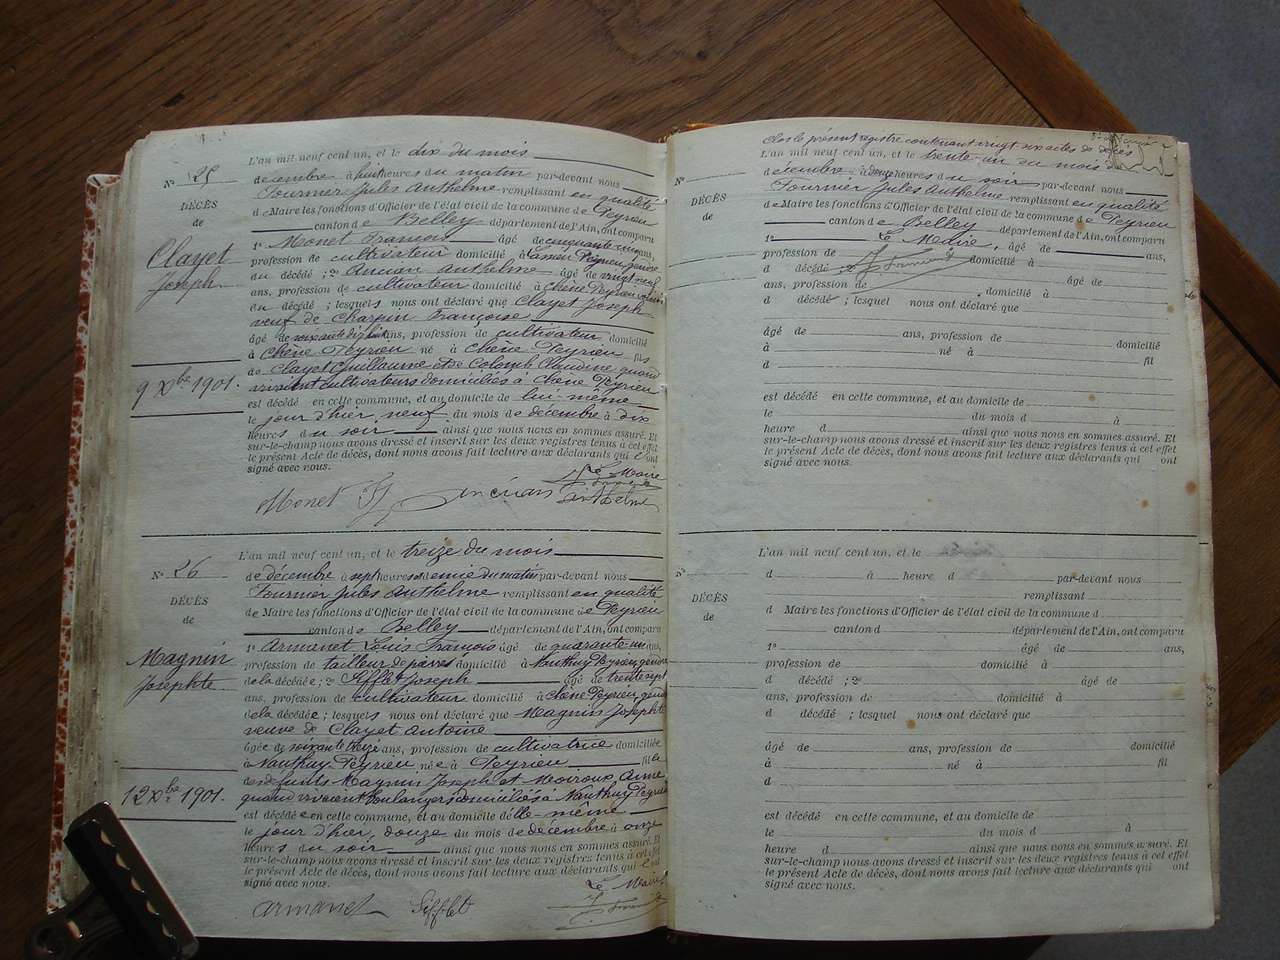 L'an mil neuf cent un, et le dix du mois
N° 25
decembre à huit heures du matin par-devant nous
Fournier Jules Anthelme remplissant en qualité
DÉCÈS
de Maire les fonctions d'Officier de l'état civil de la commune de Peyrieu
de
canton de Belley département de l'Ain, ont comparu
Clayet
Joseph
1° Monet François âgé de cinquante cinq ans,
profession de cultivateur domicilié à Peyrieu
du décédé; 2° Ancian Anthelme âgé de vingt neuf
ans, profession de cultivateur domicilié à Chêne Peyrieu voisin
du décédé; lesquels nous ont déclaré que Clayet Joseph
veuf de Charpin Françoise
âgé de soixante dix huit ans, profession de cultivateur domicilié
à Chêne Peyrieu né à Chêne Peyrieu fils
de Clayet Guillaume et de Colomb Claudine quand
9 Xbre 1901.
vivaient cultivateurs domiciliés à Chêne Peyrieu
est décédé en cette commune, et au domicile de lui même
le jour d'hier neuf du mois de décembre à dix
heures du soir ainsi que nous nous en sommes assuré. Et
sur-le-champ nous avons dressé et inscrit sur les deux registres tenus à cet effet
le présent Acte de décès, dont nous avons fait lecture aux déclarants qui ont
signé avec nous.
Le Maire
Monet Ancian Anthelme
L'an mil neuf cent un, et le treize du mois
N° 26
de décembre à sept heures et demie du matin par-devant nous
Fournier Jules Anthelme remplissant en qualité
DÉCÈS
de Maire les fonctions d'Officier de l'état civil de la commune de Peyrieu
de
canton de Belley département de l'Ain, ont comparu
Magnin
Josephte
1° Armanet Louis François âgé de quarante un ans,
profession de tailleur de pierres domicilié à Nanthuy Peyrieu gendre
de la décédée; 2° Sifflet Joseph âgé de trente sept
ans, profession de cultivateur domicilié à Chêne Peyrieu gendre
de la décédée; lesquels nous ont déclaré que Magnin Josephte
veuve de Clayet Antoine
âgée de soixante ans, profession de cultivatrice domiciliée
à Nanthuy Peyrieu née à Peyrieu fille
de défunts Magnin Joseph et Moiroux Anne
12 Xbre 1901.
quand vivaient boulangers domiciliés à Nanthuy Peyrieu
est décédée en cette commune, et au domicile d'elle-même
le jour d'hier, douze du mois de décembre à onze
heures du soir ainsi que nous nous en sommes assuré. Et
sur-le-champ nous avons dressé et inscrit sur les deux registres tenus à cet effet
le présent Acte de décès, dont nous avons fait lecture aux déclarants qui ont
signé avec nous.
Le Maire
Armanet Sifflet
Clos le présent registre contenant vingt six actes de décès
L'an mil neuf cent un, et le trente-un du mois de
N°
décembre à douze heures du soir par-devant nous
Fournier Jules Anthelme remplissant en qualité
DÉCÈS
de Maire les fonctions d'Officier de l'état civil de la commune de Peyrieu
de
canton de Belley département de l'Ain, ont comparu
1° Le Maire, âgé de ans,
profession de domicilié à
d décédé; 2° âgé de
ans, profession de domicilié à
d décédé; lesquel nous ont déclaré que
âgé de ans, profession de domicilié
à né à fil
d
est décédé en cette commune, et au domicile de
le du mois d à
heure d ainsi que nous nous en sommes assuré. Et
sur-le-champ nous avons dressé et inscrit sur les deux registres tenus à cet effet
le présent Acte de décès, dont nous avons fait lecture aux déclarants qui ont
signé avec nous.
L'an mil neuf cent un, et le
N°
d à heure d par-devant nous
remplissant
DÉCÈS
d Maire les fonctions d'Officier de l'état civil de la commune d
de
canton d département de l'Ain, ont comparu
1° âgé de ans,
profession de domicilié à
d décédé; 2° âgé de
ans, profession de domicilié à
d décédé; lesquel nous ont déclaré que
âgé de ans, profession de domicilié
à né à fil
d
est décédé en cette commune, et au domicile de
le du mois d à
heure d ainsi que nous nous en sommes assuré. Et
sur-le-champ nous avons dressé et inscrit sur les deux registres tenus à cet effet
le présent Acte de décès, dont nous avons fait lecture aux déclarants qui ont
signé avec nous.